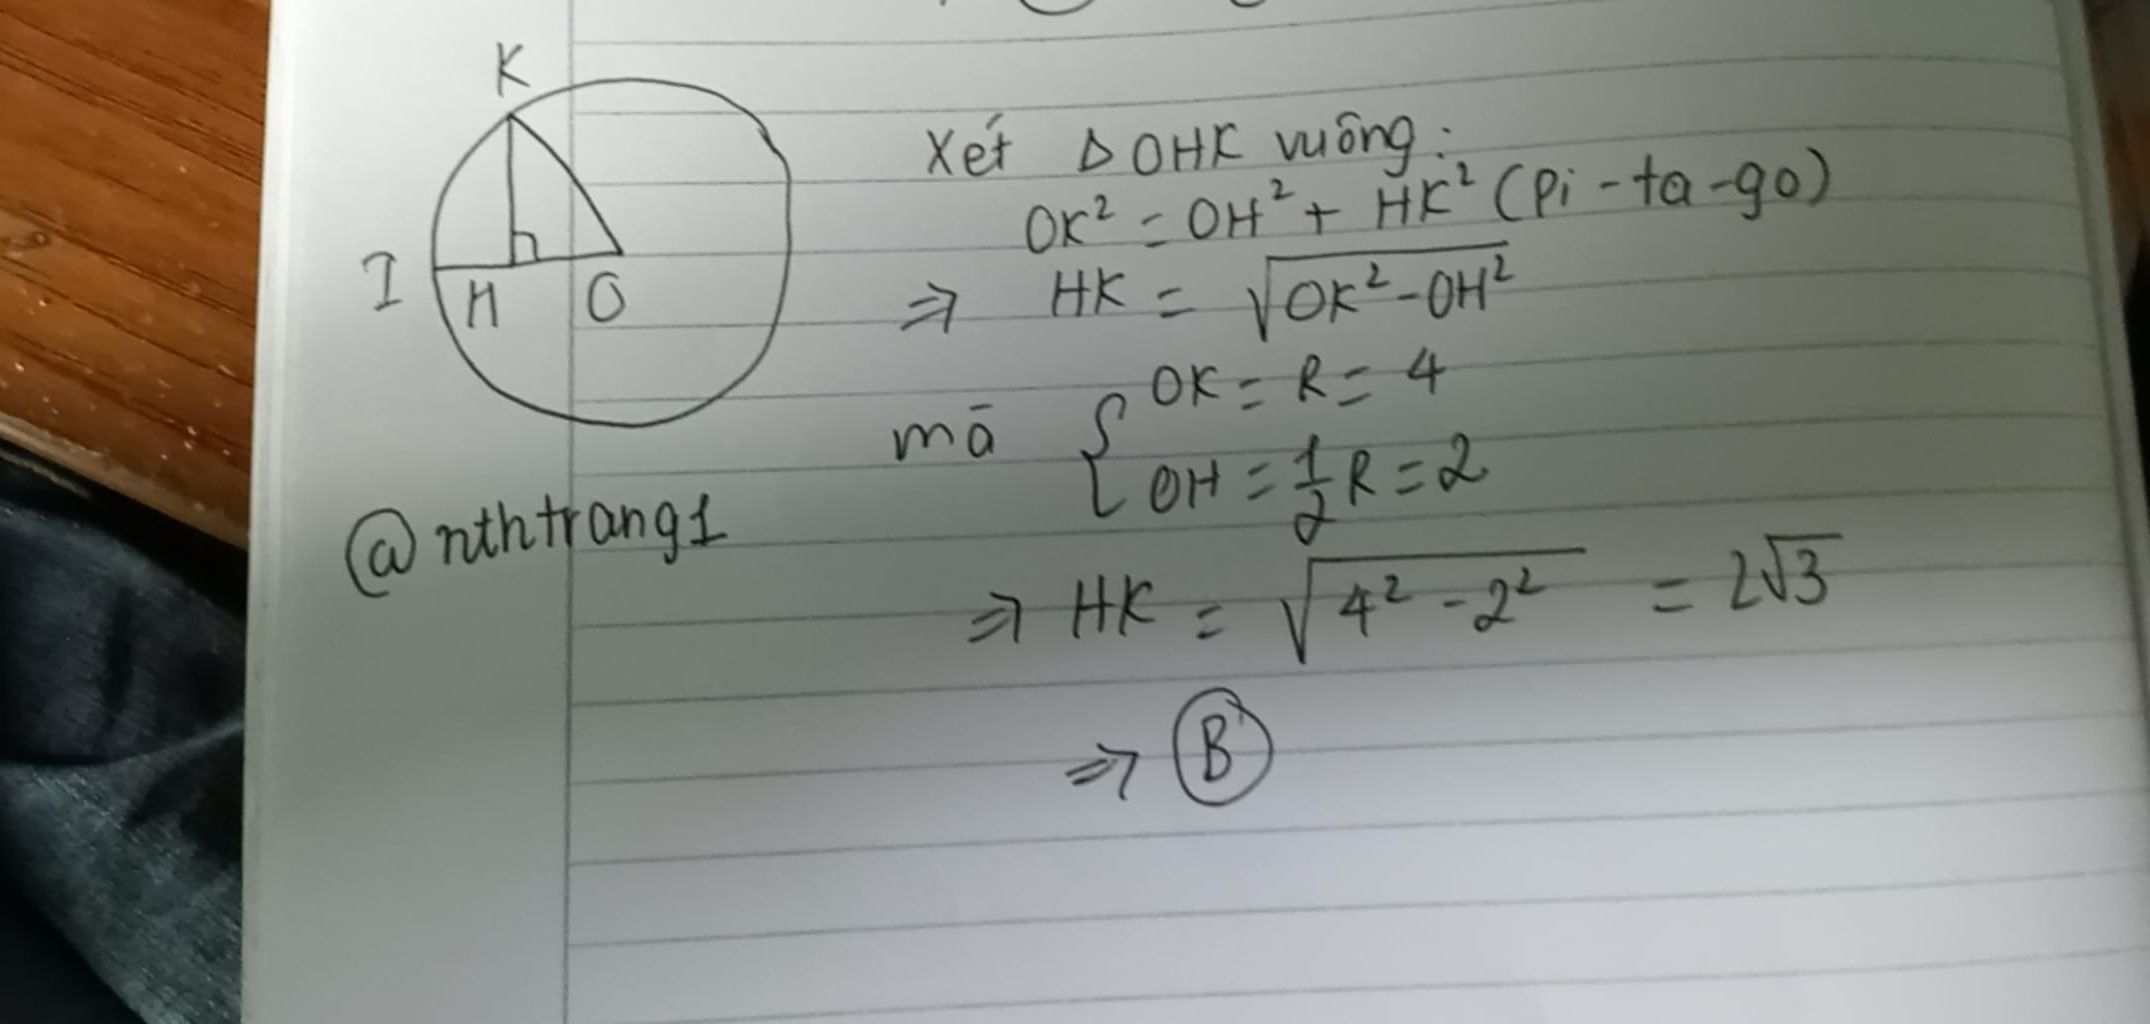 K
I H O
@nthtrang1
Xét Δ OHK vuông:
OK² = OH² + HK² (Pi-ta-go)
⇒ HK = √(OK² - OH²)
mà { OK = R = 4
OH = 1/2 R = 2
⇒ HK = √(4² - 2²) = 2√3
⇒ B